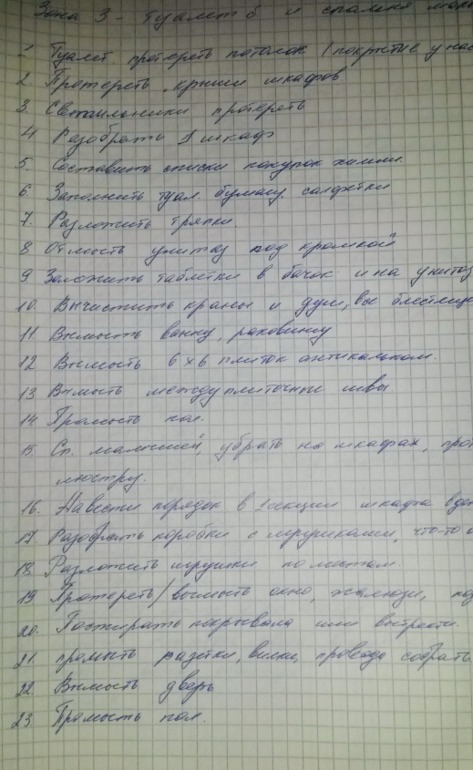 Зона 3 - Туалет б и спальня мал
1 Туалет, протереть потолок (покрытие у нас
2. Протереть крыши шкафов
3. Светильники протереть
4 Разобрать 1 шкаф
5. Составить списки покупок химии.
6. Заполнить туал. бумагу, салфетки
7. Разложить тряпки.
8 Отмыть унитаз под кромкой
9 Заложить таблетки в бачок и на унитаз
10. Вычистить краны и душ,
11 Вымыть ванну, раковину
12 Вымыть 6х6 плиток антикальком.
13 Вымыть междуплиточные швы
14 Промыть пол.
15 Сп. малышей, убрать на шкафах,
люстру.
16. Навести порядок в 1 секции шкафа
17 Разобрать коробки с игрушками, что-то
18 Разложить игрушки по местам.
19 Протереть/вымыть окно, жалюзи,
20. Постирать покрывала или вытрясти.
21 промыть разетки, вилки, провода собрать
22 Вымыть дверь
23 Промыть пол.